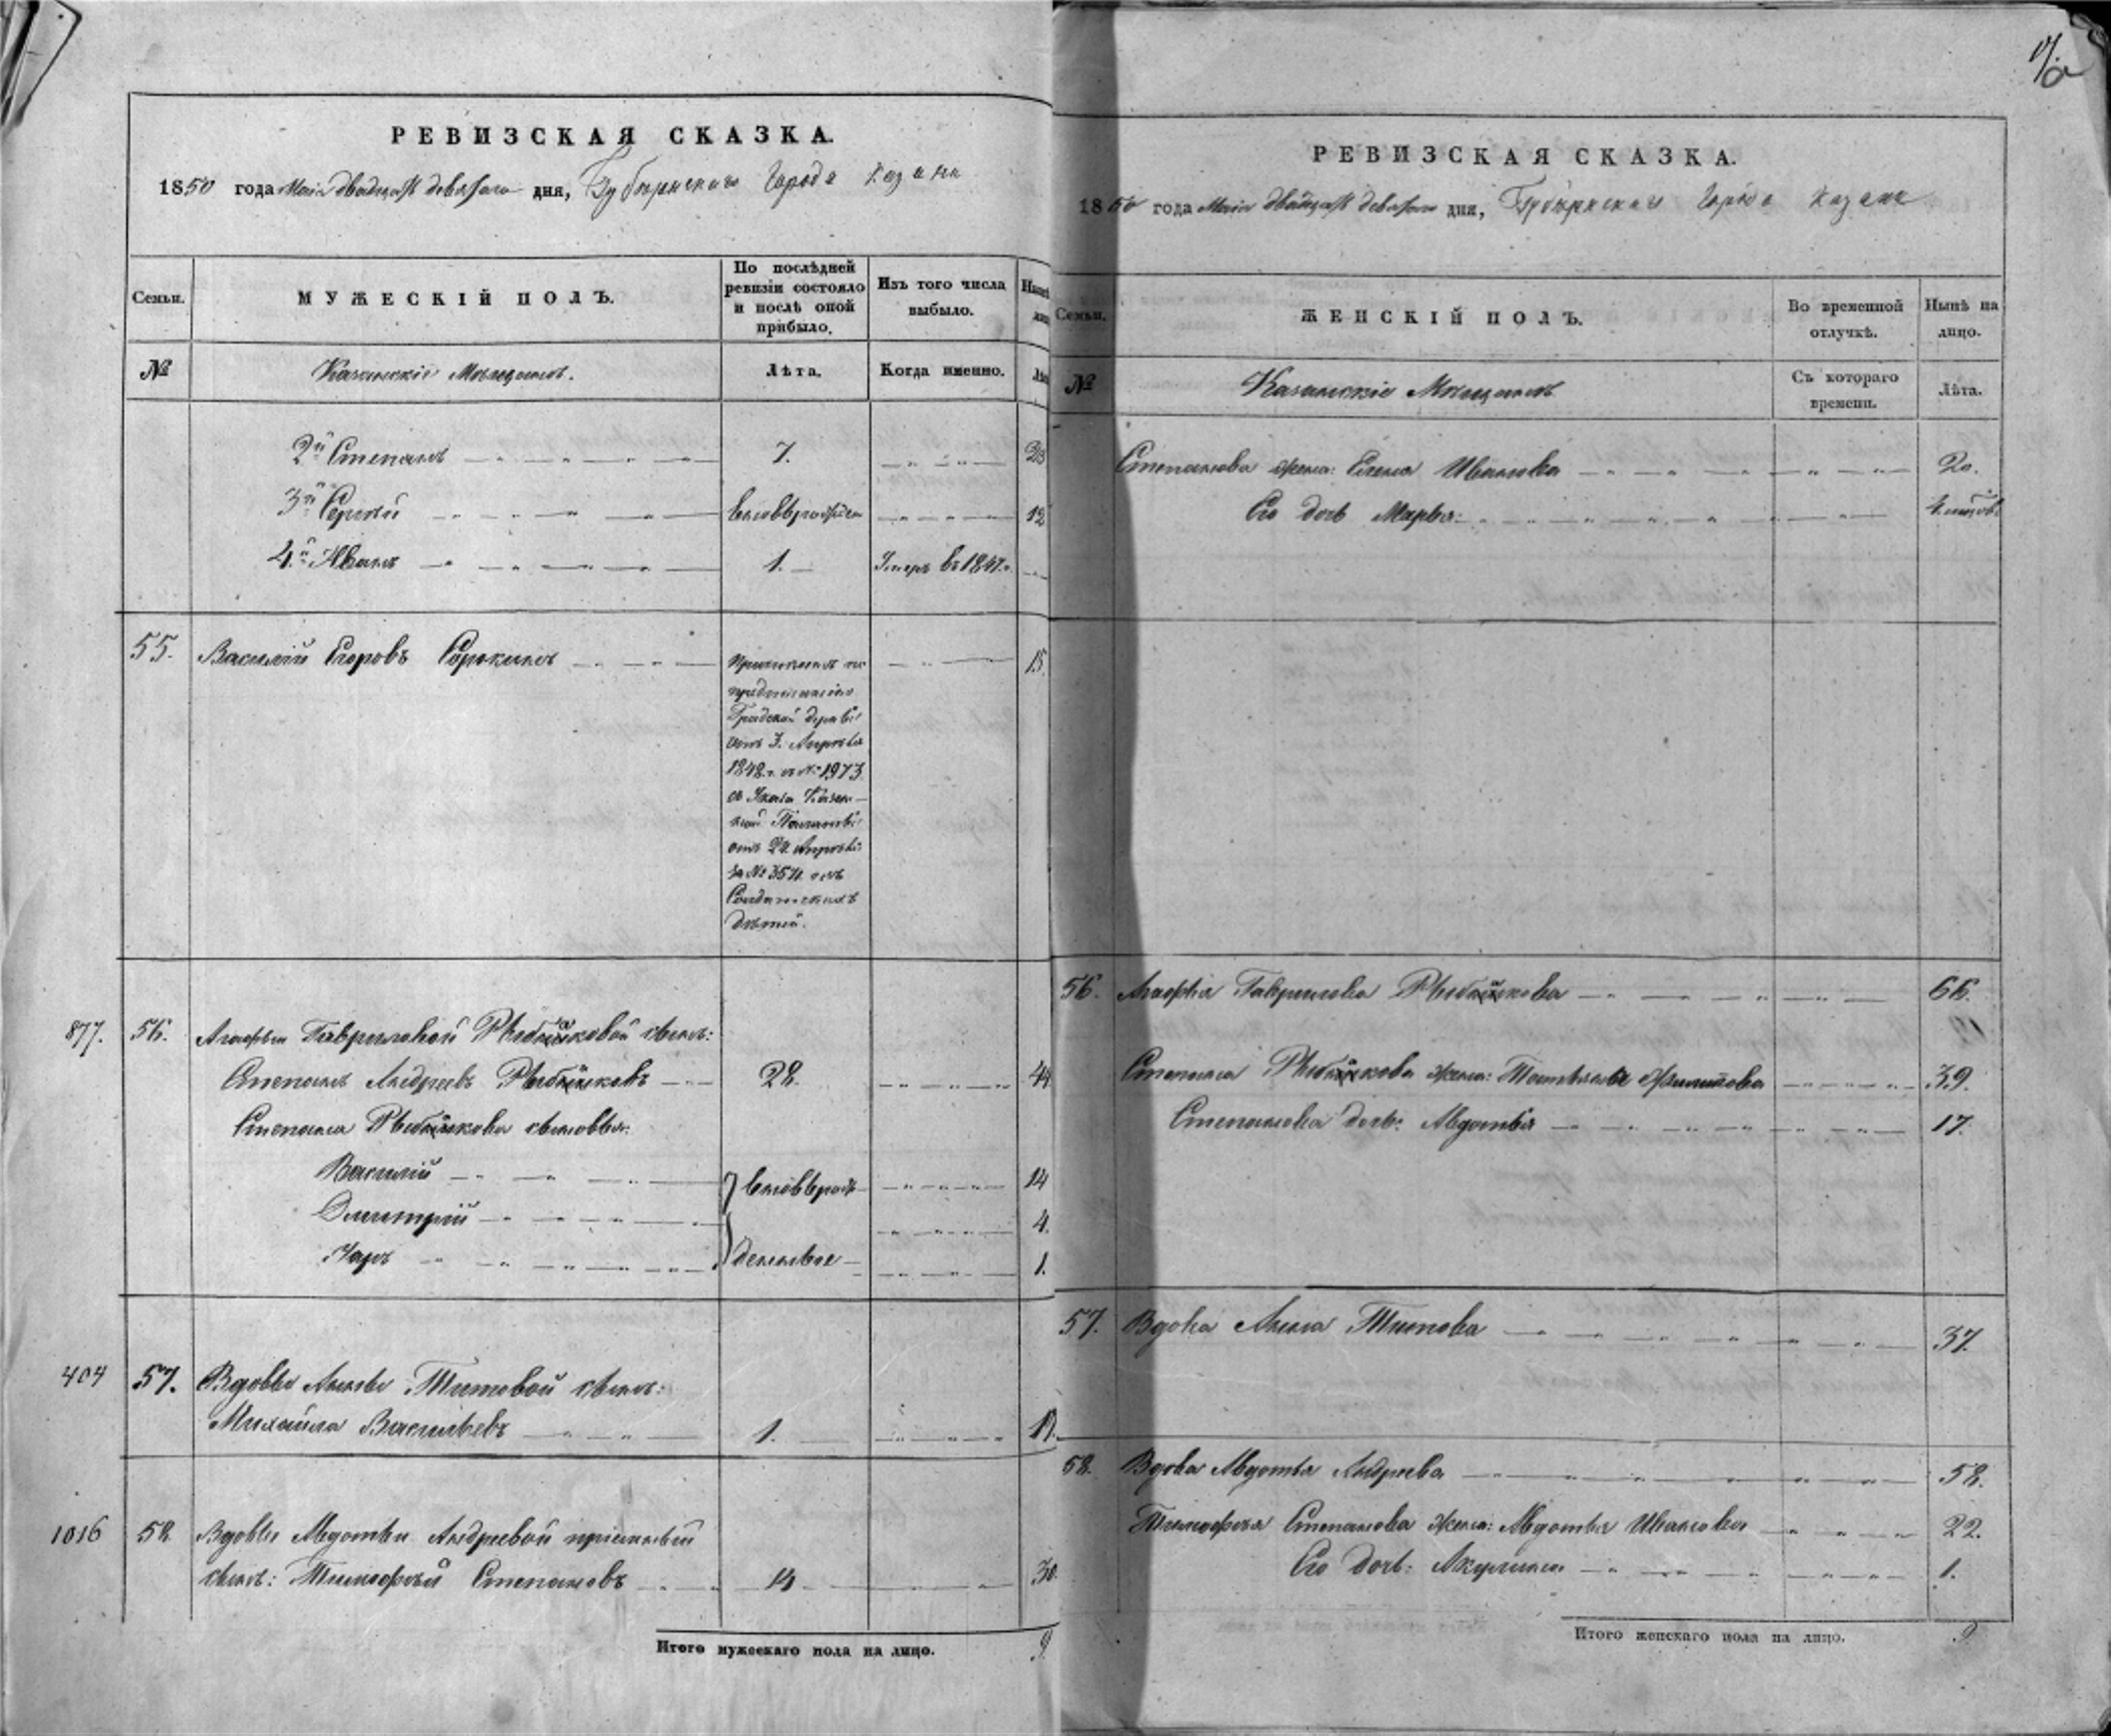 РЕВИЗСКАЯ СКАЗКА.
1850 года Мая двадцать девятаго дня, Губернскаго Города Казани
Семьи.
МУЖЕСКІЙ ПОЛЪ.
По послѣдней ревизіи состояло и послѣ оной прибыло.
Изъ того числа выбыло.
№
Казанскіе Мѣщане.
Лѣта.
Когда именно.
2й Степанъ 7.
3й Сергѣй 12
4й Иванъ 1. Умеръ въ 1841.
55. Василій Егоровъ Сорокинъ 15
Причисленъ по
предписанію
Градской Думы
отъ 3. Апрѣля
1848 г. № 1973
Указа Казен-
ной Палаты
отъ 22 Апрѣля
за № 3521 изъ
Солдатскихъ
дѣтей.
877. 56. Агафьи Гавриловой сынъ:
Степанъ Андреевъ 28. 44
Степана сыновья:
Василій 14
Дмитрій 4.
1.
404 57. Вдовы Анны Титовой сынъ:
Михайла Васильевъ 1. 17.
1016 58 Вдовы Авдотьи Андреевой пріемный
сынъ: Тимофей Степановъ 14 30.
Итого мужескаго пола на лицо. 9
РЕВИЗСКАЯ СКАЗКА.
1850 года Мая двадцать девятаго дня, Губернскаго Города Казани
Семьи.
ЖЕНСКІЙ ПОЛЪ.
Во временной отлучкѣ.
Нынѣ на лицо.
№
Казанскіе Мѣщане
Съ котораго времени.
Лѣта.
Степанова жена: Елена Иванова 20.
Его дочь Марья
56. Агафья Гаврилова 66.
Степана жена: Филипова 39.
Степанова дочь: Авдотья 17.
57. Вдова Анна Титова 37.
58. Вдова Авдотья Андреева 58.
Тимофея Степанова жена: Авдотья Иванова 22.
Его дочь: Акулина 1.
Итого женскаго пола на лицо. 9